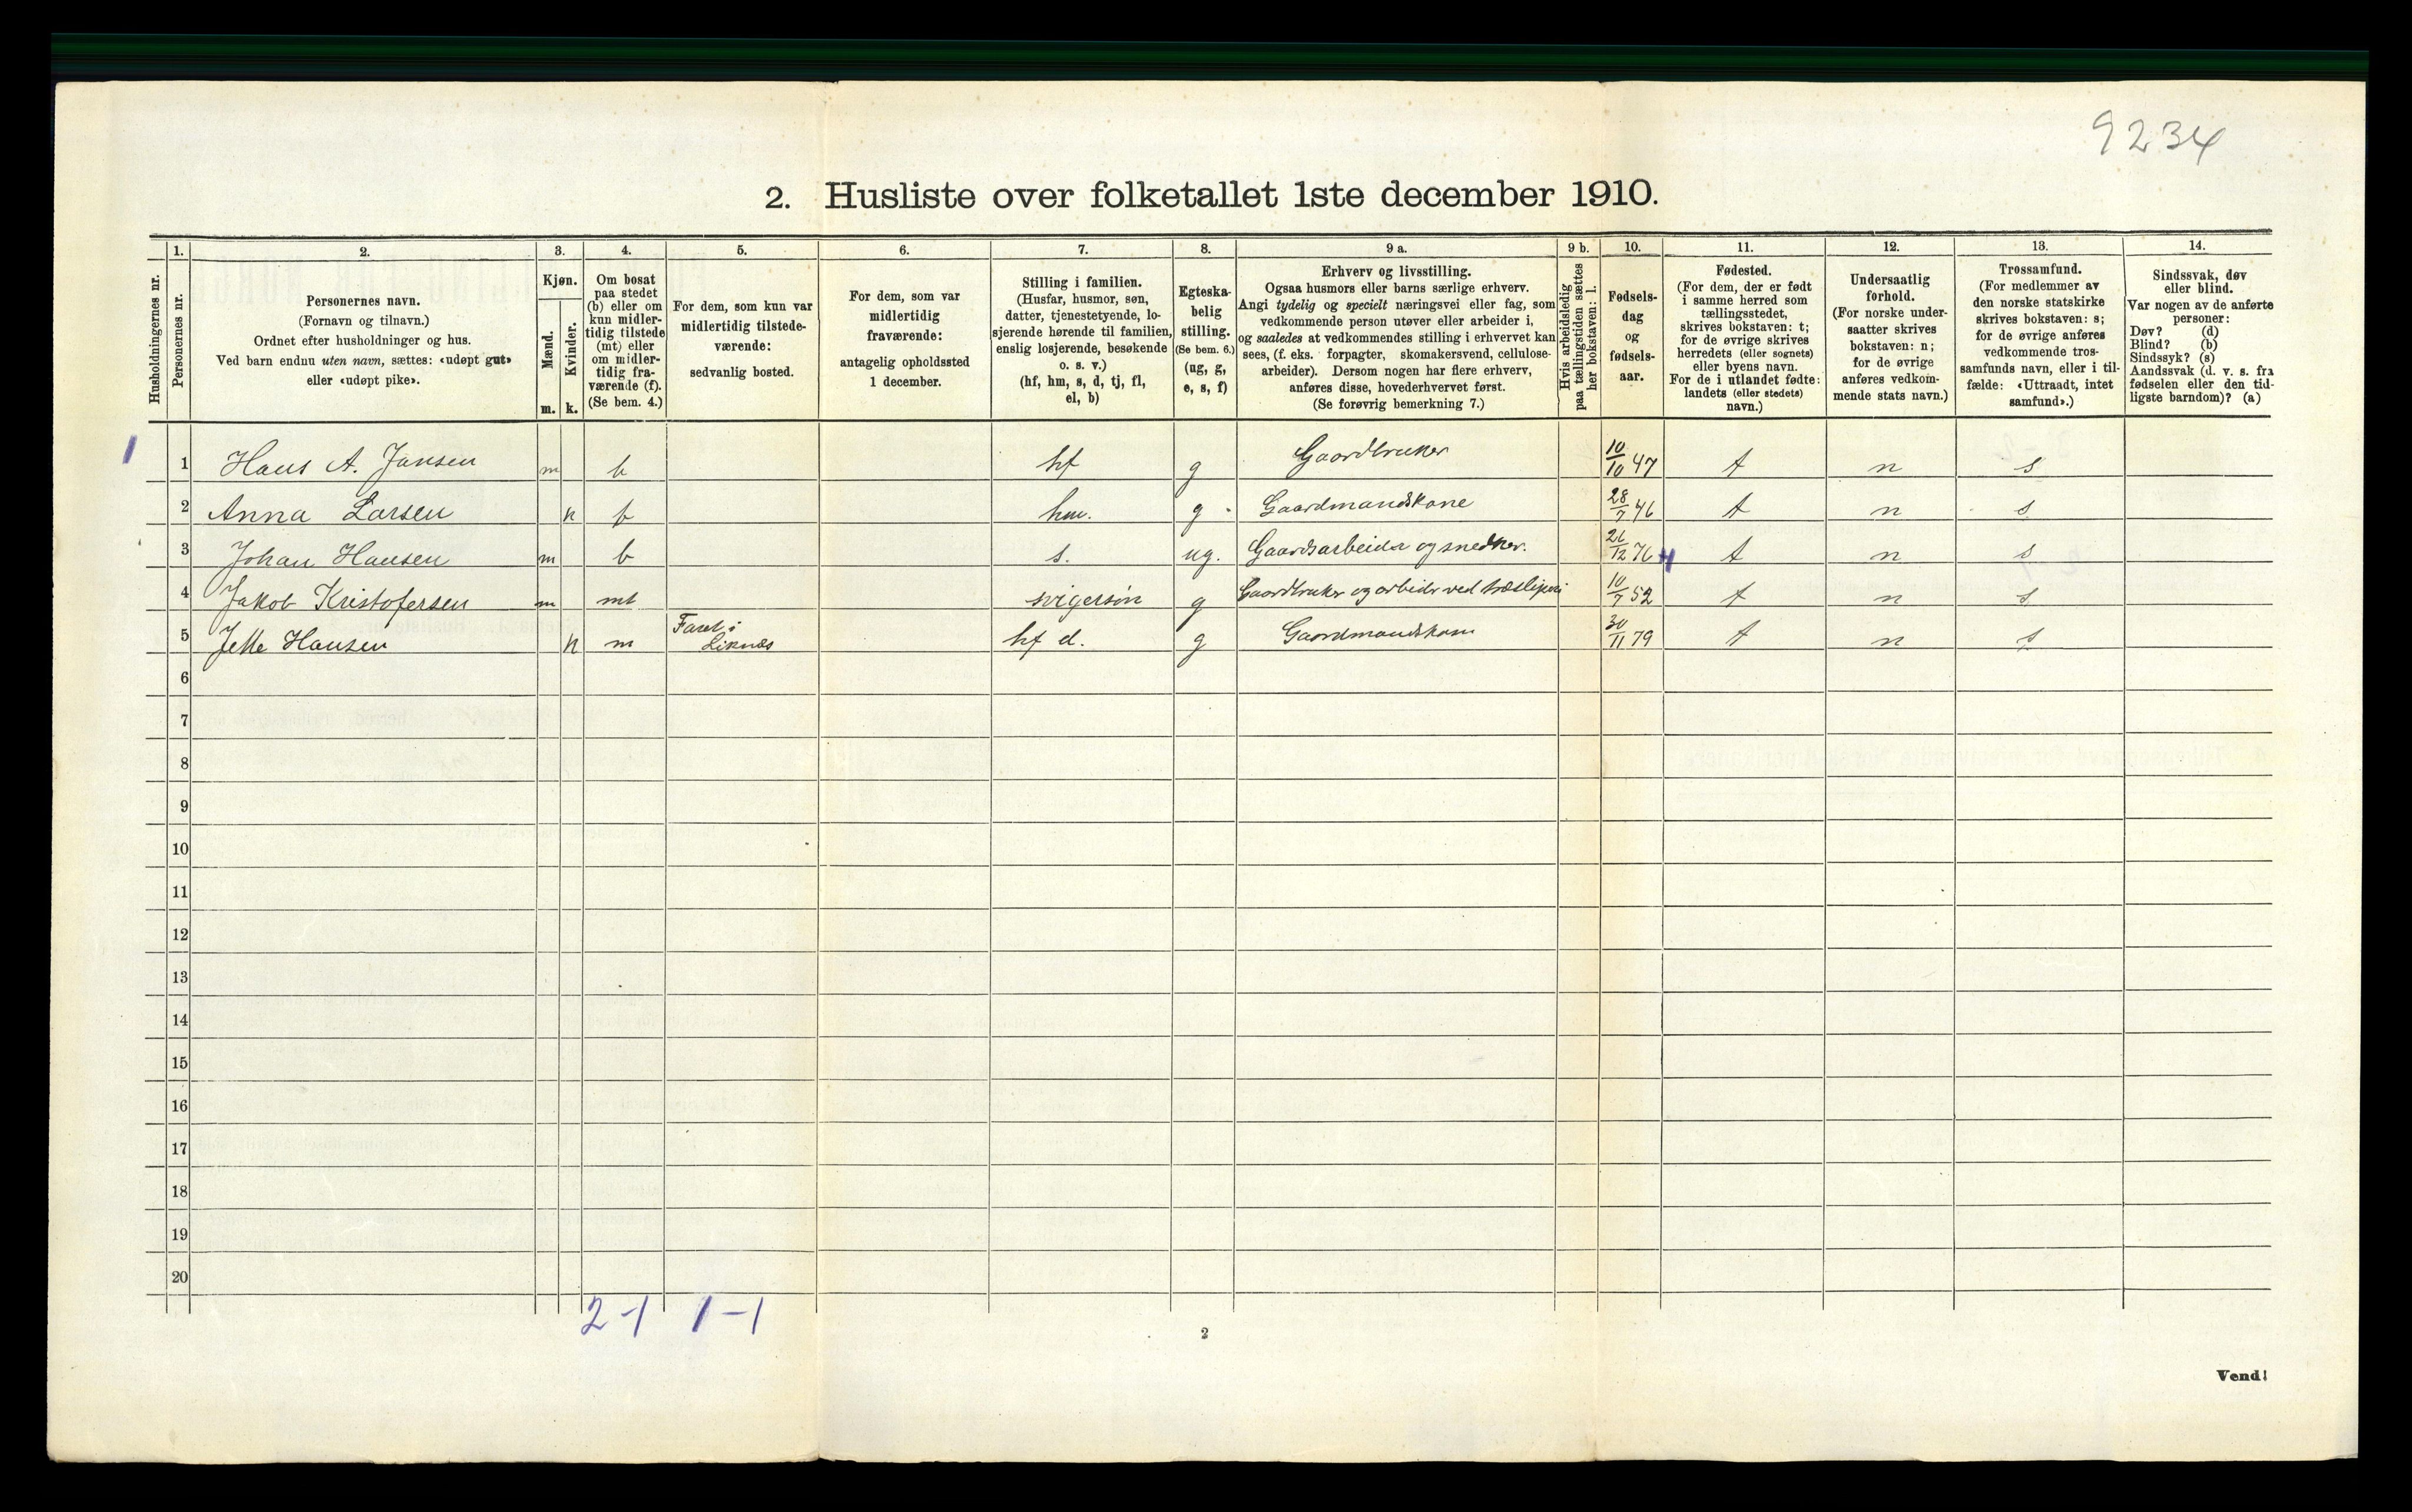 9234
2. Husliste over folketallet 1ste december 1910.
Husholdningernes nr.
1.
Personernes nr.
2.
Personernes navn.
(Fornavn og tilnavn.)
Ordnet efter husholdninger og hus.
Ved barn endnu uten navn, sættes: «udøpt gut»
eller «udøpt pike».
3.
Kjøn.
Mænd.
m.
Kvinder.
k.
4.
Om bosat
paa stedet
(b) eller om
kun midler-
tidig tilstede
(mt) eller
om midler-
tidig fra-
værende (f).
(Se bem. 4.)
5.
For dem, som kun var
midlertidig tilstede-
værende:
sedvanlig bosted.
6.
For dem, som var
midlertidig
fraværende:
antagelig opholdssted
1 december.
7.
Stilling i familien.
(Husfar, husmor, søn,
datter, tjenestetyende, lo-
sjerende hørende til familien,
enslig losjerende, besøkende
o. s. v.)
(hf, hm, s, d, tj, fl,
el, b)
8.
Egteska-
belig
stilling.
(Se bem. 6.)
(ug, g,
e, s, f)
9 a.
Erhverv og livsstilling.
Ogsaa husmors eller barns særlige erhverv.
Angi tydelig og specielt næringsvei eller fag, som
vedkommende person utøver eller arbeider i,
og saaledes at vedkommendes stilling i erhvervet kan
sees, (f. eks. forpagter, skomakersvend, cellulose-
arbeider). Dersom nogen har flere erhverv,
anføres disse, hovederhvervet først.
(Se forøvrig bemerkning 7.)
9 b.
Hvis arbeidsledig
paa tællingstiden sættes
her bokstaven: l.
10.
Fødsels-
dag
og
fødsels-
aar.
11.
Fødested.
(For dem, der er født
i samme herred som
tællingsstedet,
skrives bokstaven: t;
for de øvrige skrives
herredets (eller sognets)
eller byens navn.
For de i utlandet fødte:
landets (eller stedets)
navn.)
12.
Undersaatlig
forhold.
(For norske under-
saatter skrives
bokstaven: n;
for de øvrige
anføres vedkom-
mende stats navn.)
13.
Trossamfund.
(For medlemmer av
den norske statskirke
skrives bokstaven: s;
for de øvrige anføres
vedkommende tros-
samfunds navn, eller i til-
fælde: «Uttraadt, intet
samfund».)
14.
Sindssvak, døv
eller blind.
Var nogen av de anførte
personer:
Døv? (d)
Blind? (b)
Sindssyk? (s)
Aandssvak (d. v. s. fra
fødselen eller den tid-
ligste barndom)? (a)
1 1 Hans A. Jansen m b hf g Gaardbruker 10/10 47 t n s
2 Anna Larsen k b hm. g Gaardmandskone 28/7 46 t n s
3 Johan Hansen m b s. ug. Gaardsarbeider og snedker. 26/12 76 t n s
4 Jakob Kristofersen m mt svigersøn g Gaardbruker og arbeider ved træsliperi 10/7 52 t n s
5 Jette Hansen k m Faret i Liknæs hf d. g Gaardmandskone 30/11 79 t n s
6
7
8
9
10
11
12
13
14
15
16
17
18
19
20
2-1 1-1
2
Vend!